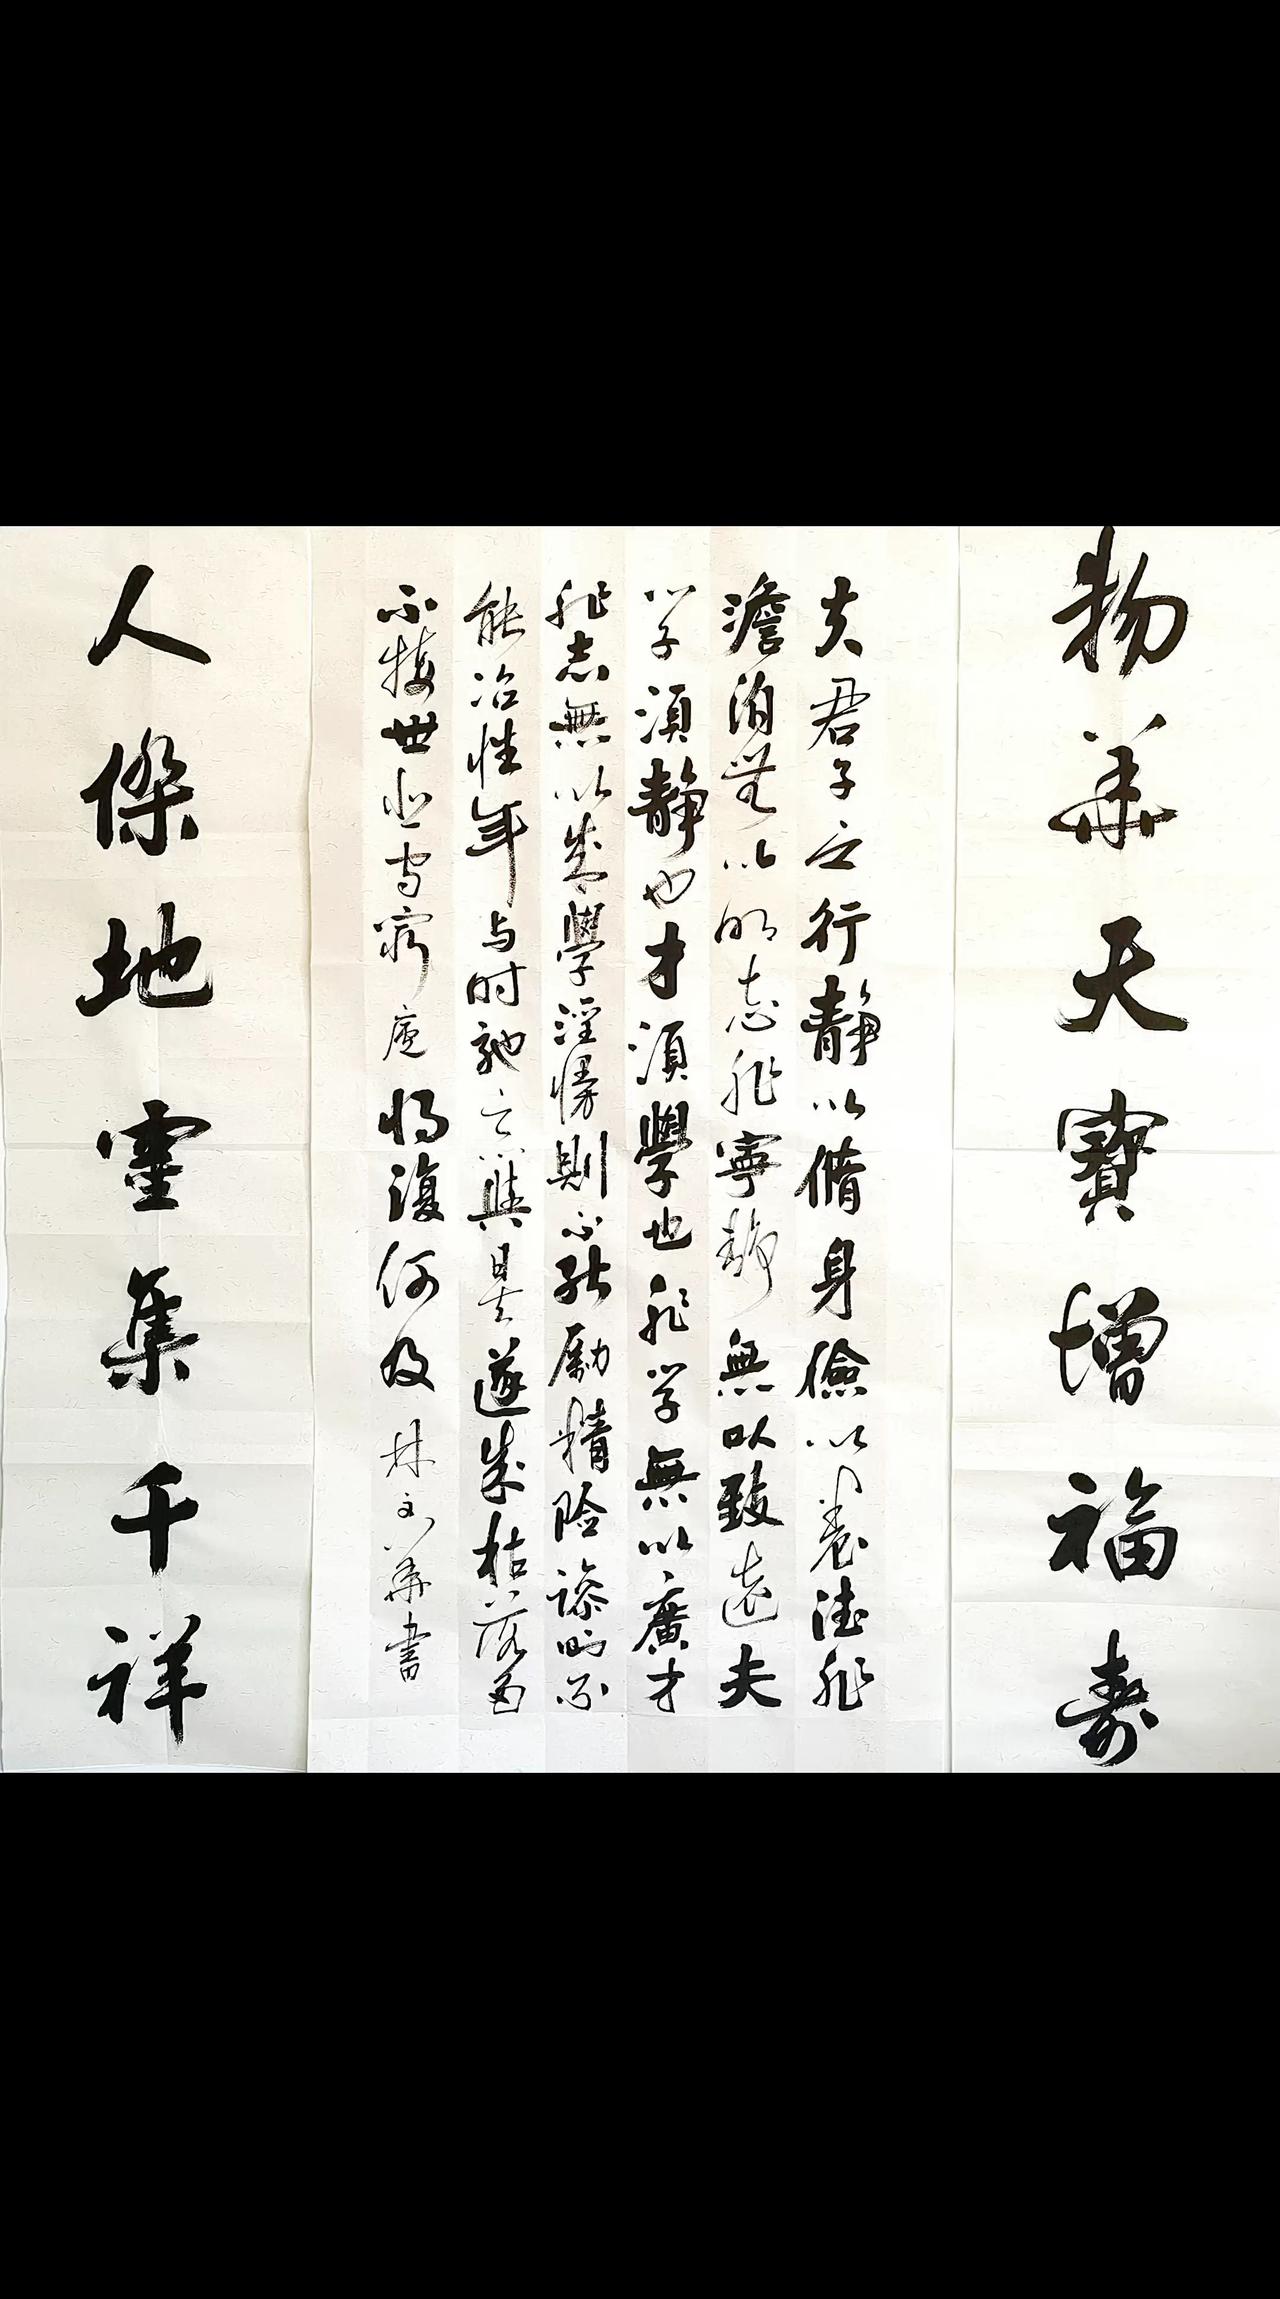 物華天寶增福壽
夫君子之行靜以脩身儉以養德非
澹泊無以明志非寧靜無以致遠夫
學須靜也才須學也非学無以廣才
非志無以成學淫慢則不能励精险躁则不
能冶性年与时馳意與日去遂成枯落多
不接世悲守窮廬将復何及林文華書
人傑地靈集千祥